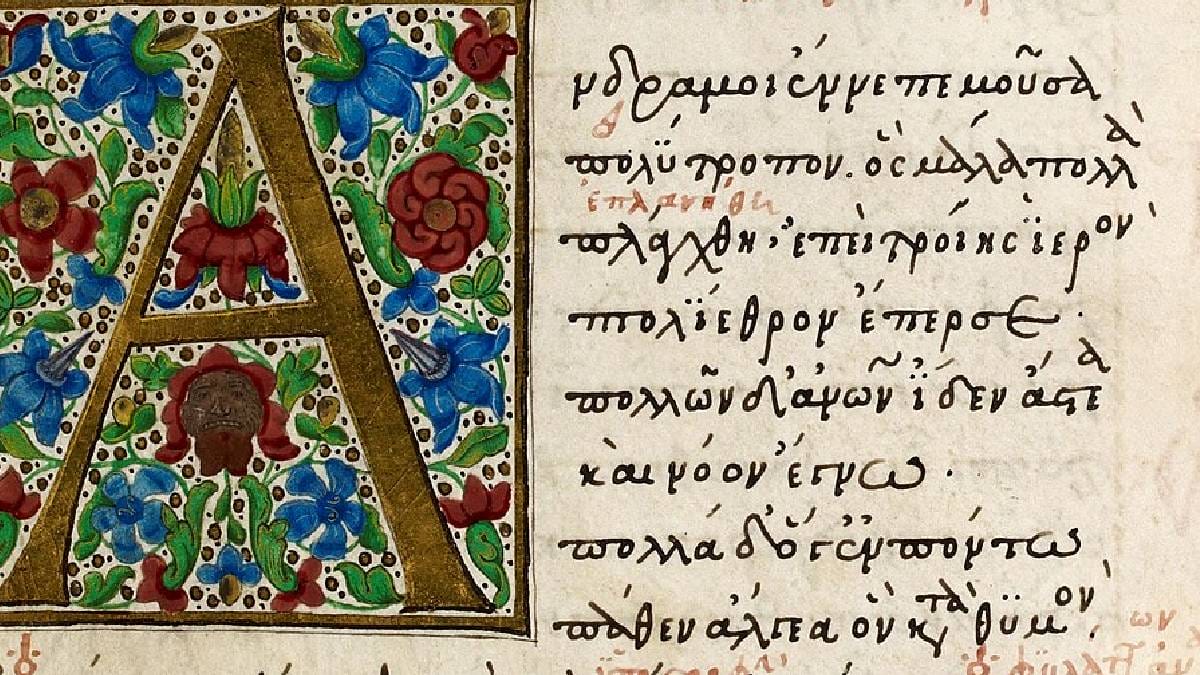 Α
νδρα μοι ἔννεπε μοῦσα
πολύτροπον. ὃς μάλα πολλὰ
ἐπλανήθη
πλάγχθη, ἐπεὶ τροίης ἱερὸν
πτολίεθρον ἔπερσε.
πολλῶν δ' ἀνθρώπων ἴδεν ἄστεα
καὶ νόον ἔγνω.
πολλὰ δ' ὅγ' ἐν πόντω
πάθεν ἄλγεα ὃν κατὰ θϋμόν,
ων